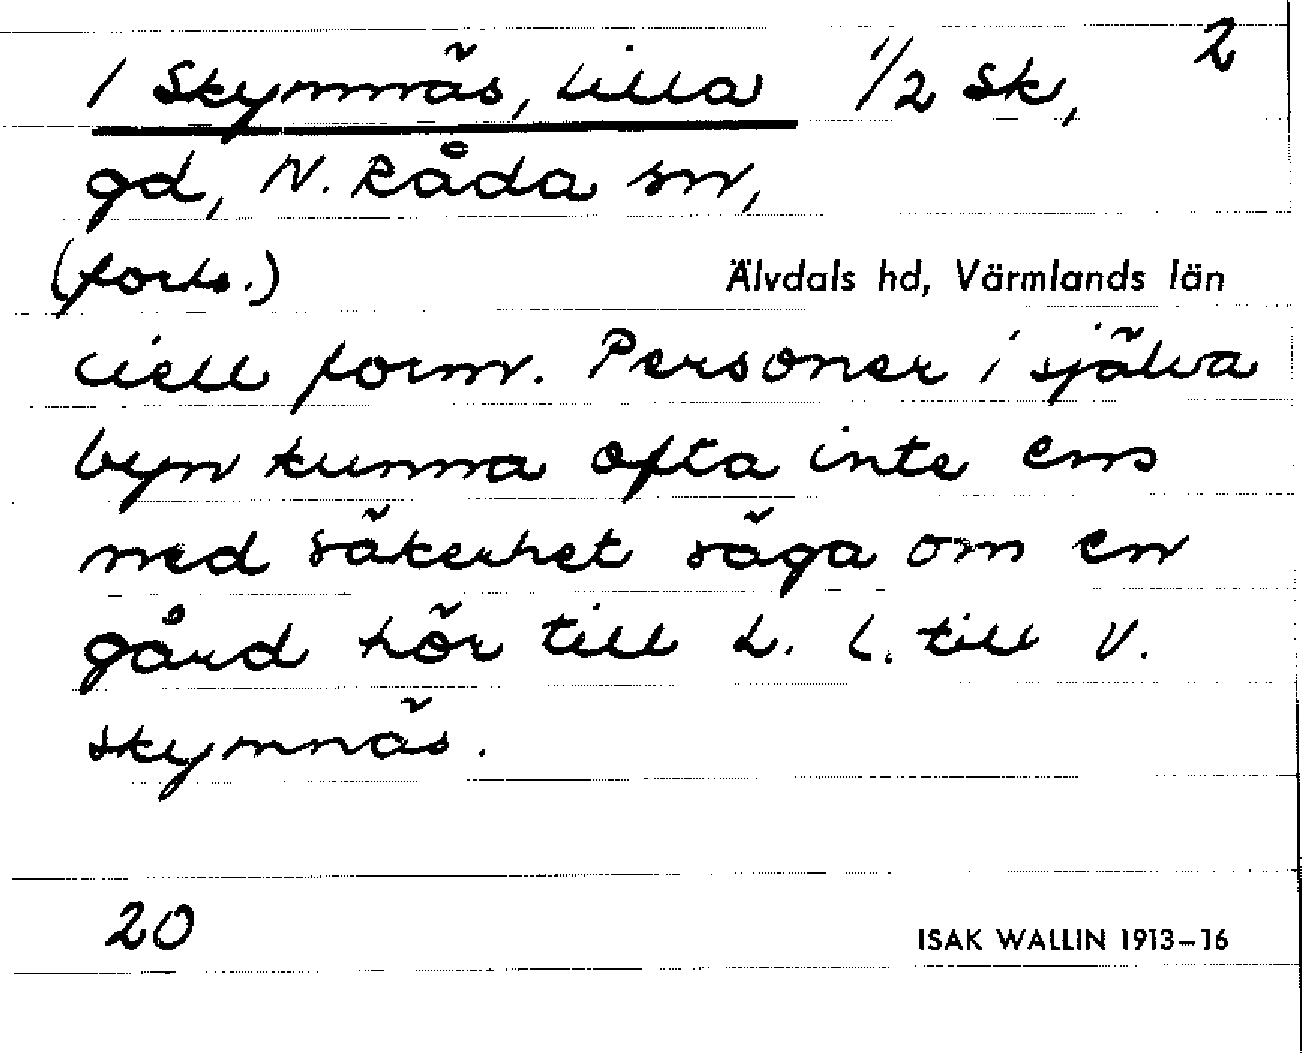 2
1 Skymnäs, Lilla 1/2 Sk,
gd, N. Råda sn,
(forts.)
Älvdals hd, Värmlands län
ciell form. Personer i själva
byn kunna ofta inte ens
med säkerhet säga om en
gård hör till L. l. till V.
Skymnäs.
20
ISAK WALLIN 1913–16